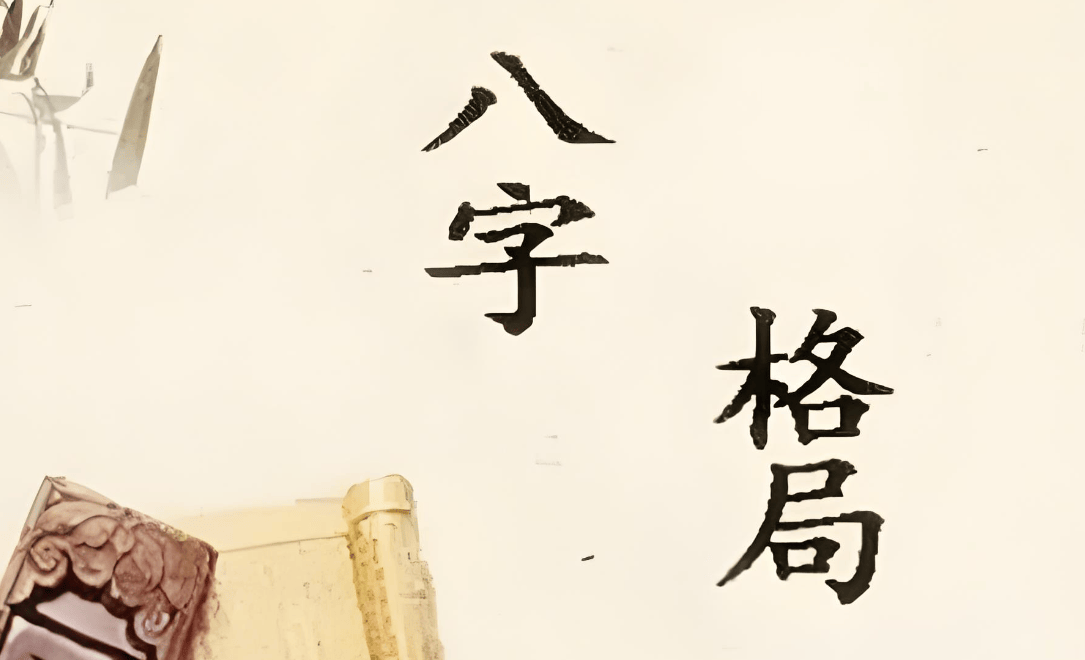 八字
格局